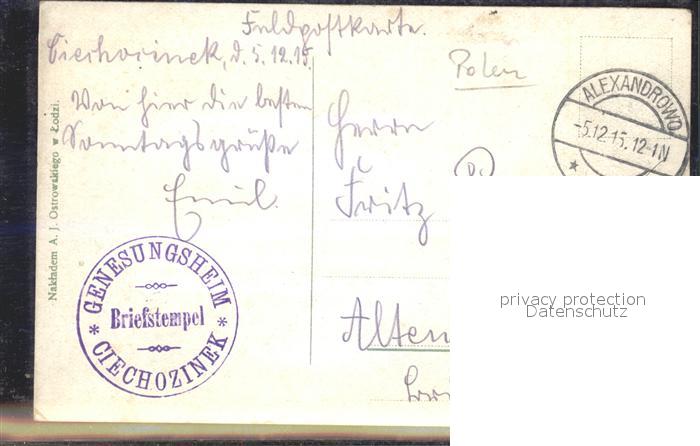 Feldpostkarte.
Ciechocinek, d. 5.12.15.
Von hier die besten
Sonntagsgrüße
Emil.
Nakładem A. J. Ostrowskiego w Łodzi.
GENESUNGSHEIM
Briefstempel
* CIECHOZINEK *
Polen
ALEXANDROWO
-5.12.15.12-1N
*
Herrn
Fritz
Alten
privacy protection
Datenschutz